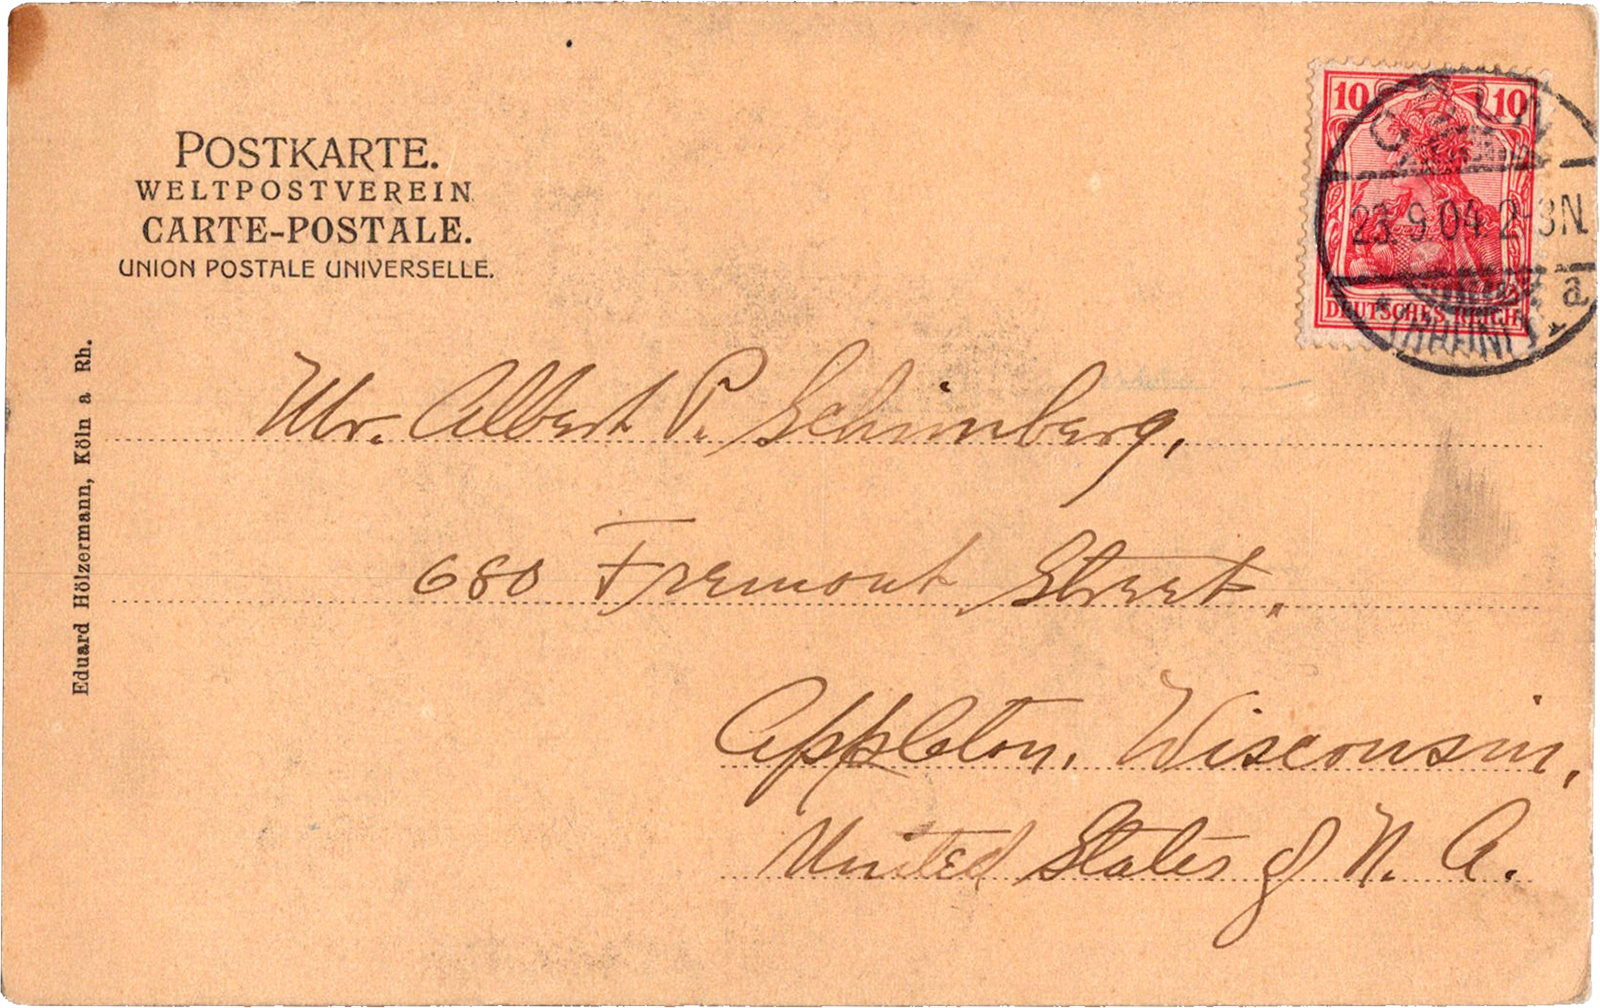 POSTKARTE.
WELTPOSTVEREIN
CARTE-POSTALE.
UNION POSTALE UNIVERSELLE.
10 10
23.9.04. 2-3N.
a.
DEUTSCHES REICH
Eduard Hölzermann, Köln a Rh.
Mr. Albert P. Schimberg,
680 Fremont Street,
Appleton, Wisconsin,
United States of N. A.